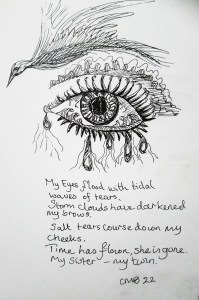 My Eyes flood with tidal
waves of tears.
Storm clouds have darkened
my brows.
Salt tears course down my
cheeks.
Time has flown, she is gone.
My Sister – my twin.
CMB 22